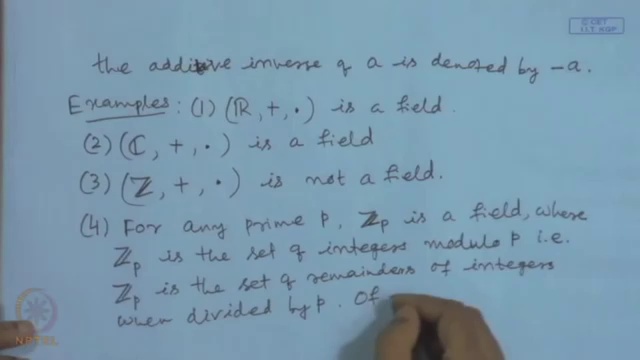 © CET
I.I.T. KGP
the additive inverse of a is denoted by -a.
Examples: (1) (ℝ, +, ·) is a field.
(2) (ℂ, +, ·) is a field
(3) (ℤ, +, ·) is not a field.
(4) For any prime p, ℤp is a field, where
ℤp is the set of integers modulo p i.e.
ℤp is the set of remainders of integers
when divided by p. Of
NPTEL